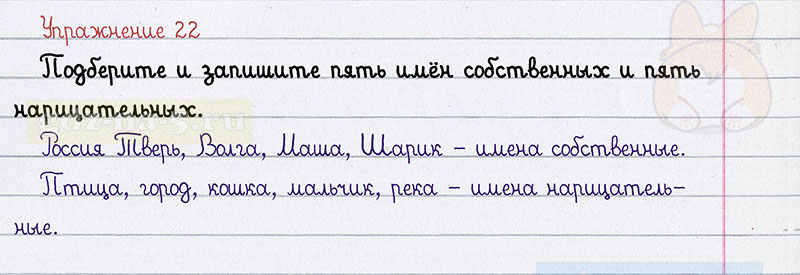 Упражнение 22
Подберите и запишите пять имён собственных и пять
нарицательных.
Россия Тверь, Волга, Маша, Шарик – имена собственные.
Птица, город, кошка, мальчик, река – имена нарицатель–
ные.